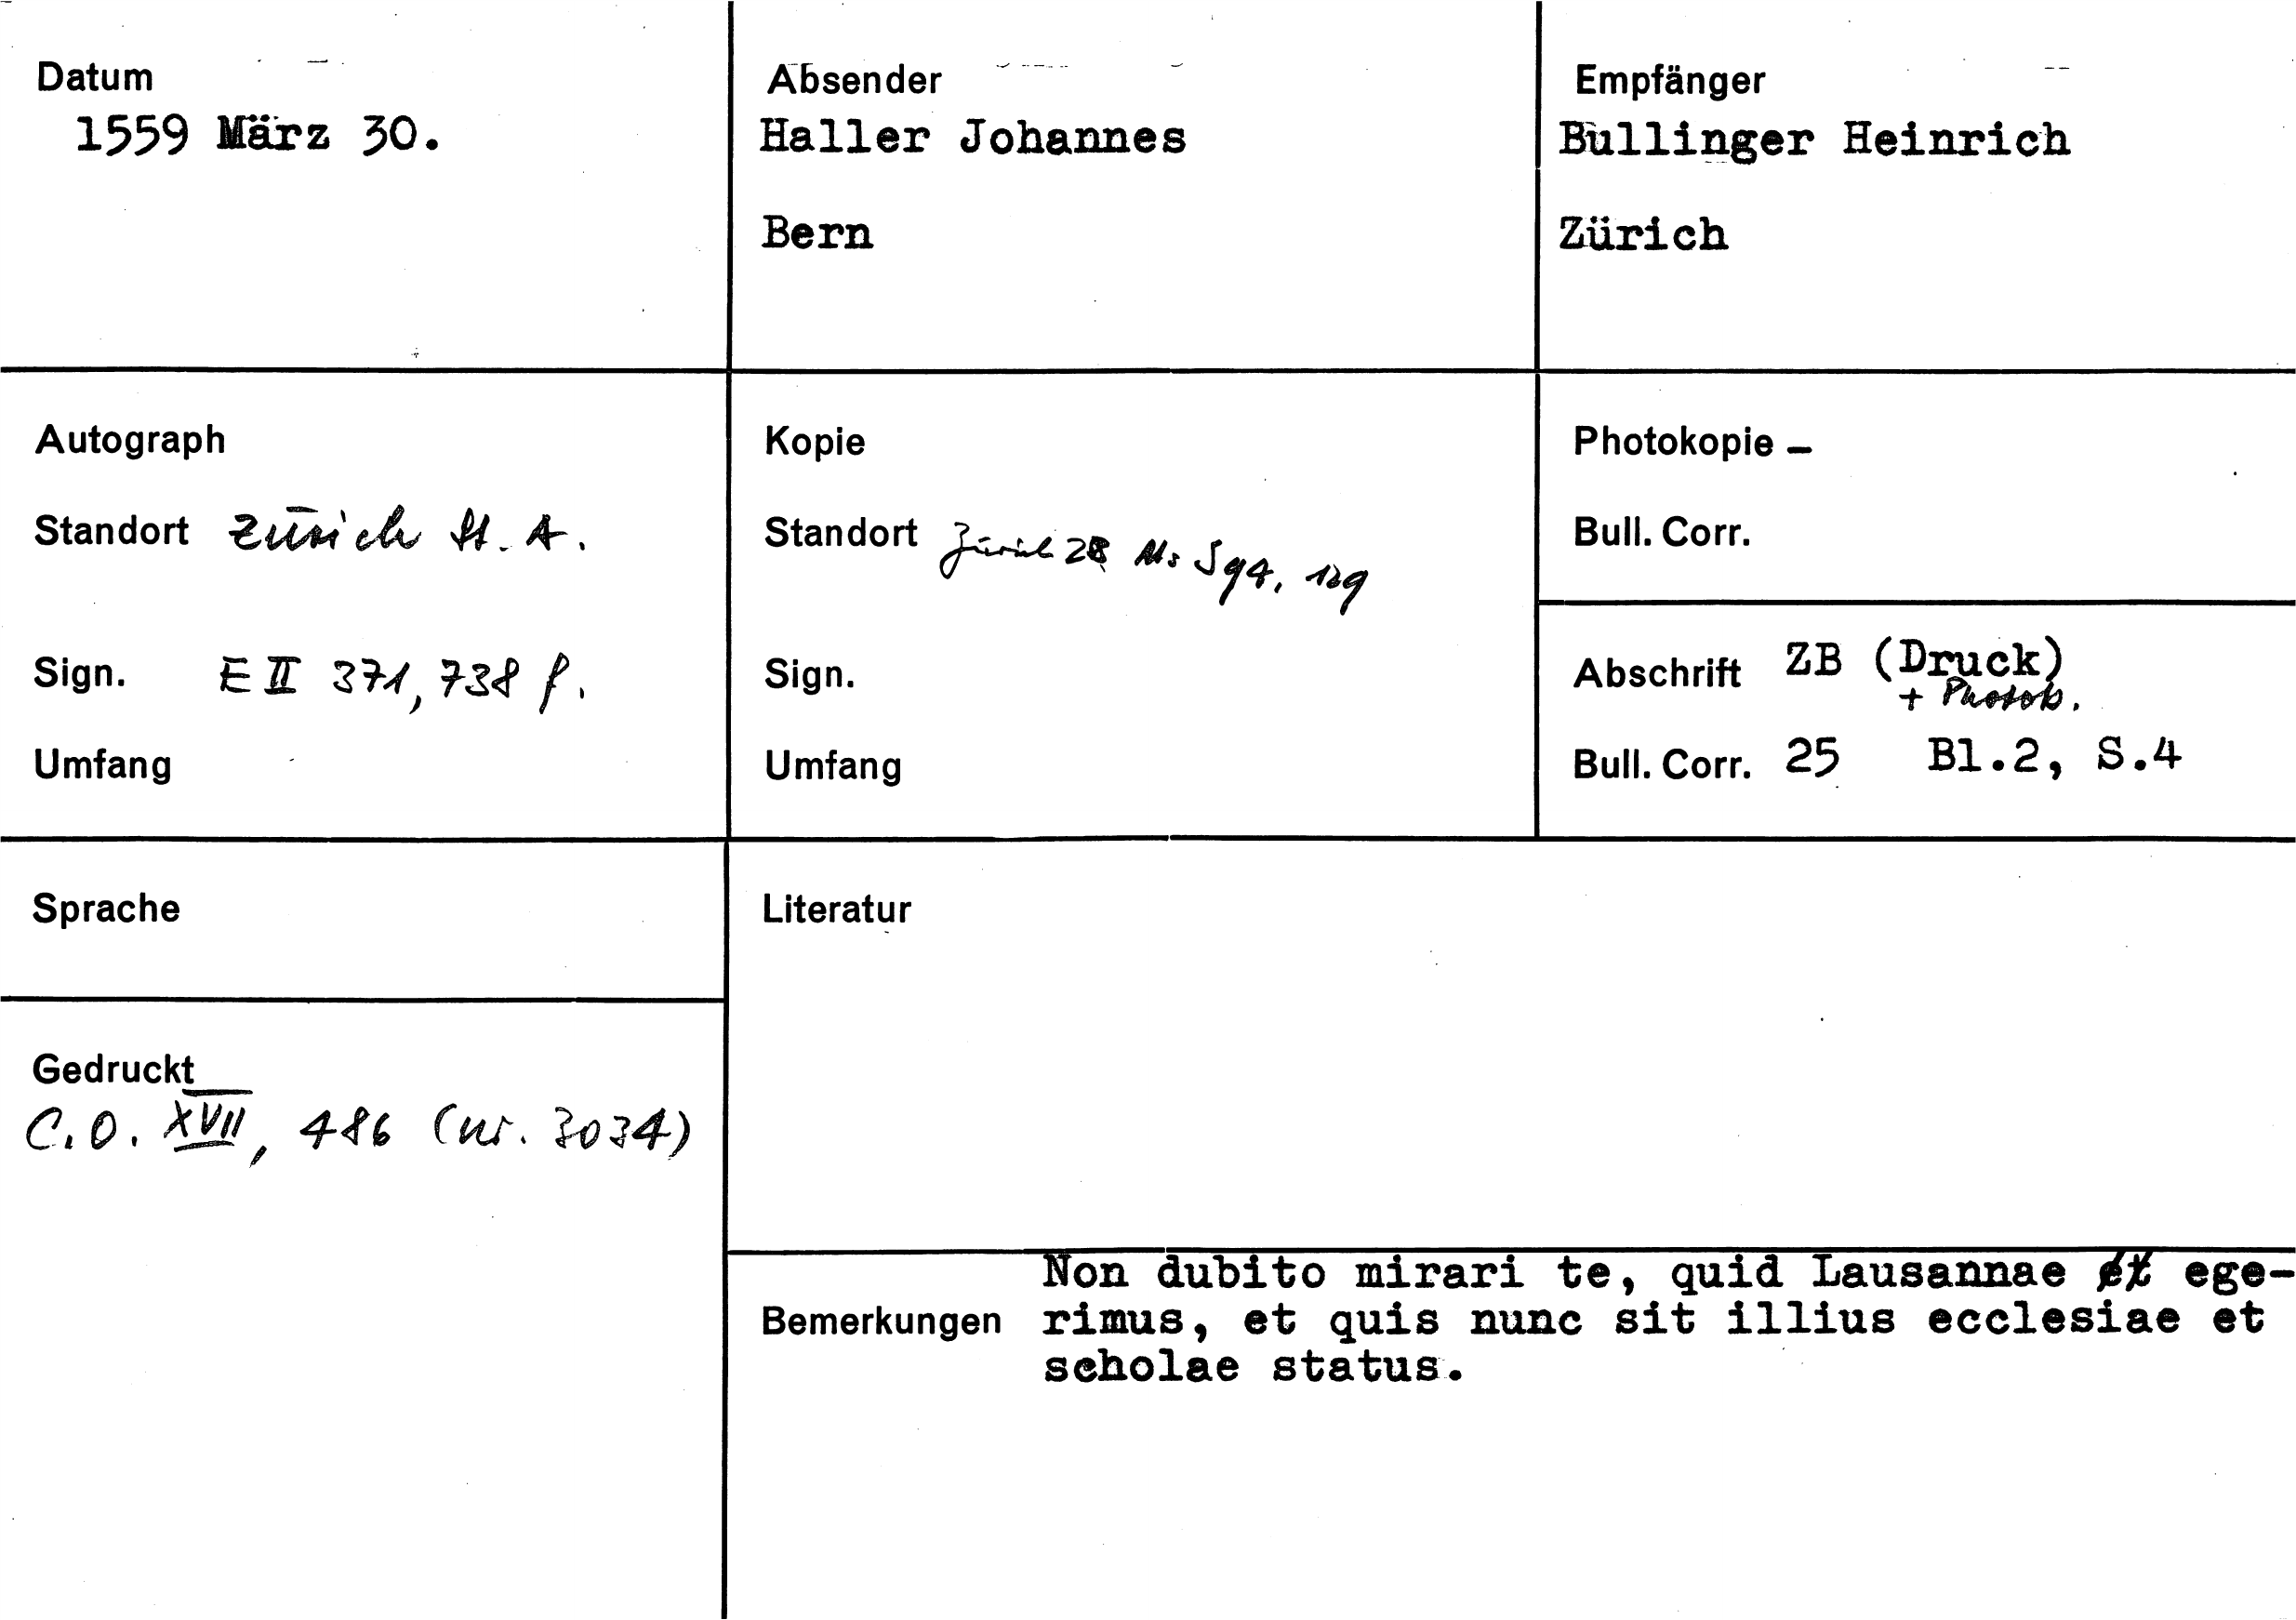 Datum
1559 März 30.
Absender
Haller Johannes
Bern
Empfänger
Bullinger Heinrich
Zürich
Autograph
Standort Zürich St. A.
Sign. E II 371, 738 f.
Umfang
Kopie
Standort Zürich ZB Ms S 94, 129
Sign.
Umfang
Photokopie –
Bull. Corr.
Abschrift ZB (Druck)
+ Photok.
Bull. Corr. 25 Bl.2, S.4
Sprache
Gedruckt
C. O. XVII, 486 (Nr. 3034)
Literatur
Bemerkungen
Non dubito mirari te, quid Lausannae et ege-
rimus, et quis nunc sit illius ecclesiae et
scholae status.